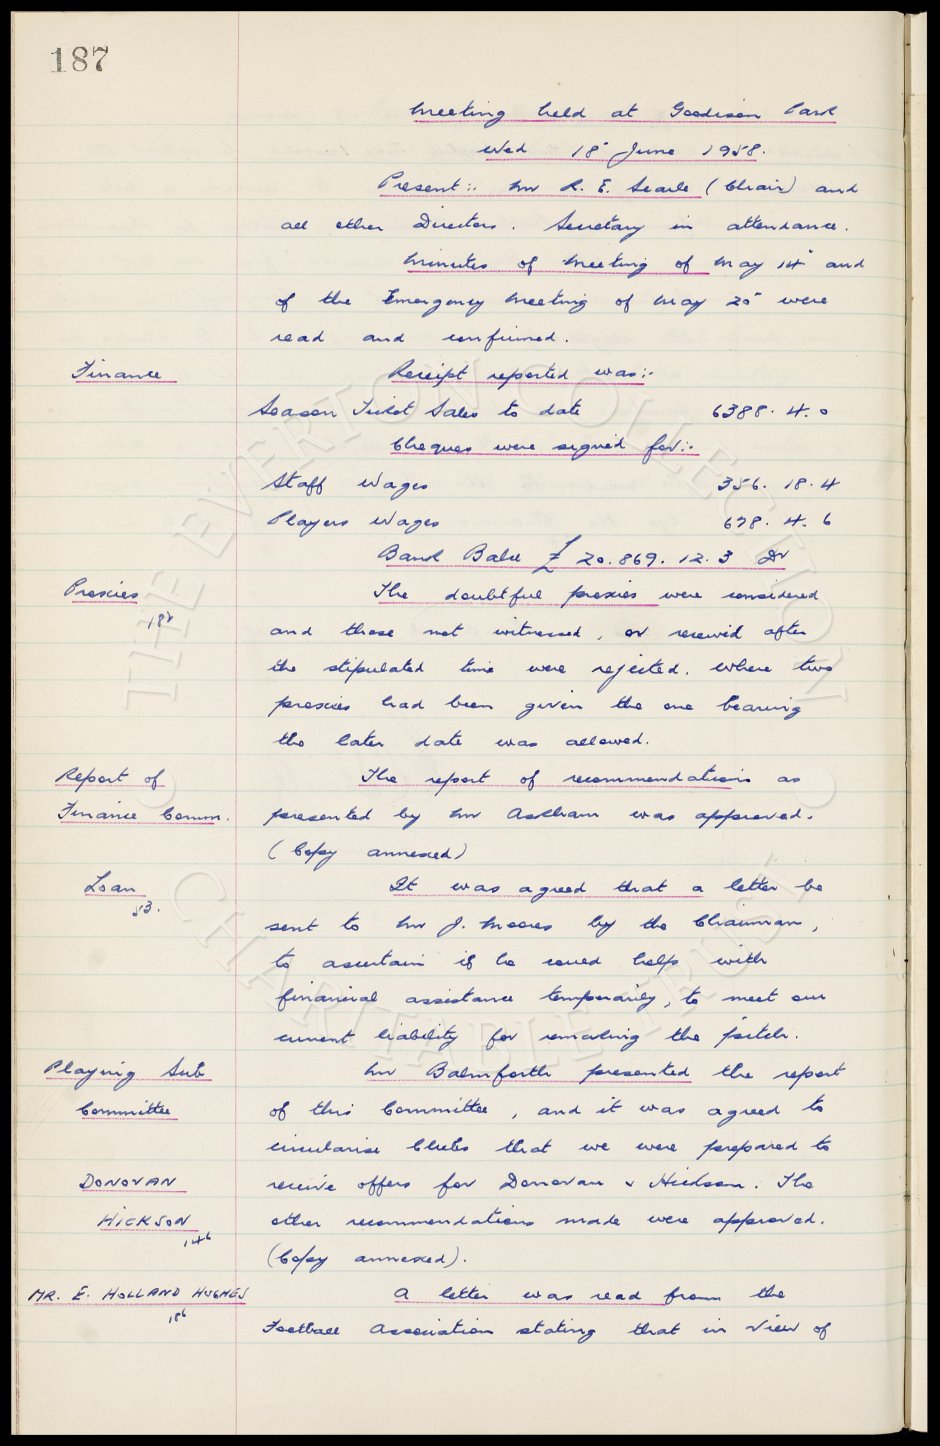 187
Meeting held at Goodison Park
Wed 18" June 1958.
Present:: Mr R. E. Searle (Chair) and
all other Directors. Secretary in attendance.
Minutes of Meeting of May 14" and
of the Emergency Meeting of May 20" were
read and confirmed.
Finance
Receipt reported was:-
Season Ticket Sales to date 6388. 4. 0
Cheques were signed for:-
Staff Wages 356. 18. 4
Players Wages 678. 4. 6
Bank Balce £ 20.869. 12. 3 Dr
Proxies
The doubtful proxies were considered
and those not witnessed, or received after
the stipulated time were rejected. Where two
proxies had been given the one bearing
the later date was allowed.
Report of
Finance Comm.
The report of recommendations as
presented by Mr Askham was approved.
(Copy annexed)
Loan
53.
It was agreed that a letter be
sent to Mr J. Moores by the Chairman,
to ascertain if he could help with
financial assistance temporarily, to meet our
current liability for remaking the pitch.
Playing Sub
Committee
Mr Balmforth presented the report
of this Committee, and it was agreed to
circularise Clubs that we were prepared to
DONOVAN
receive offers for Donovan & Hickson. The
HICKSON
146
other recommendations made were approved.
(Copy annexed).
MR. E. HOLLAND HUGHES
186
A letter was read from the
Football Association stating that in view of
THE EVERTON COLLECTION
CHARITABLE TRUST